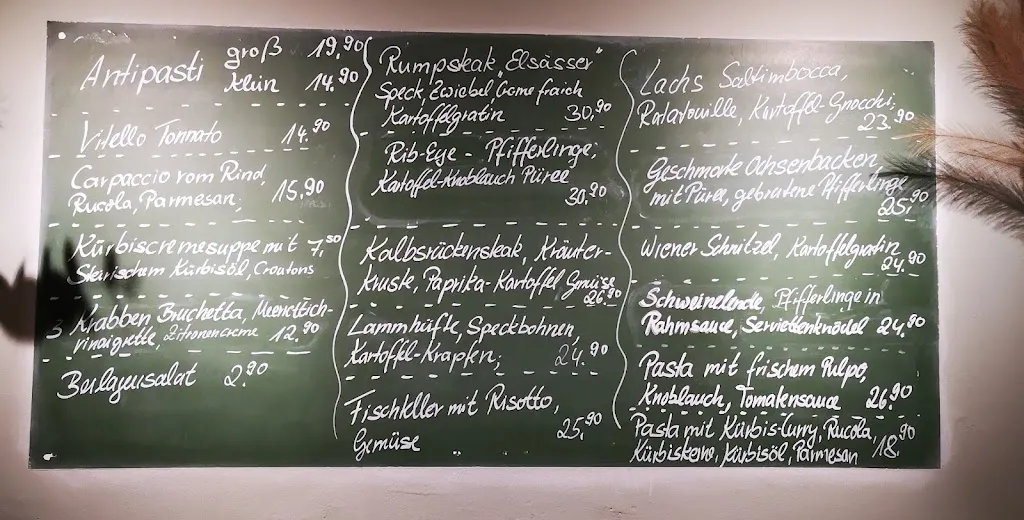 Antipasti groß 19.90
klein 14.90
Vitello Tonnato 14.90
Carpaccio vom Rind,
Rucola, Parmesan, 15.90
Kürbiscremesuppe mit 7.50
Steirischem Kürbisöl, Croutons
3 Krabben Bruchetta, Meerettich-
vinaigrette, Zitronencreme 12.90
Beilagensalat 2.90
Rumpsteak „Elsässer"
Speck, Zwiebel Creme fraich
Kartoffelgratin 30.90
Rib-Eye - Pfifferlinge,
Kartoffel-Knoblauch Püree
30.90
Kalbsrückensteak, Kräuter-
kruste, Paprika-Kartoffel Gemüse
26.90
Lammhüfte, Speckbohnen,
Kartoffel-Krapfen, 24.90
Fischteller mit Risotto,
Gemüse 25.90
Lachs Saltimbocca,
Ratatouille, Kartoffel-Gnocchi,
23.90
Geschmorte Ochsenbacken
mit Püree, gebratene Pfifferlinge
25.90
Wiener Schnitzel, Kartoffelgratin
24.90
Schweinelende, Pfifferlinge in
Rahmsauce, Serviettenknödel 24.90
Pasta mit frischem Pulpo,
Knoblauch, Tomatensauce 26.90
Pasta mit Kürbis-Curry, Rucola,
Kürbiskerne, Kürbisöl, Parmesan 18.90